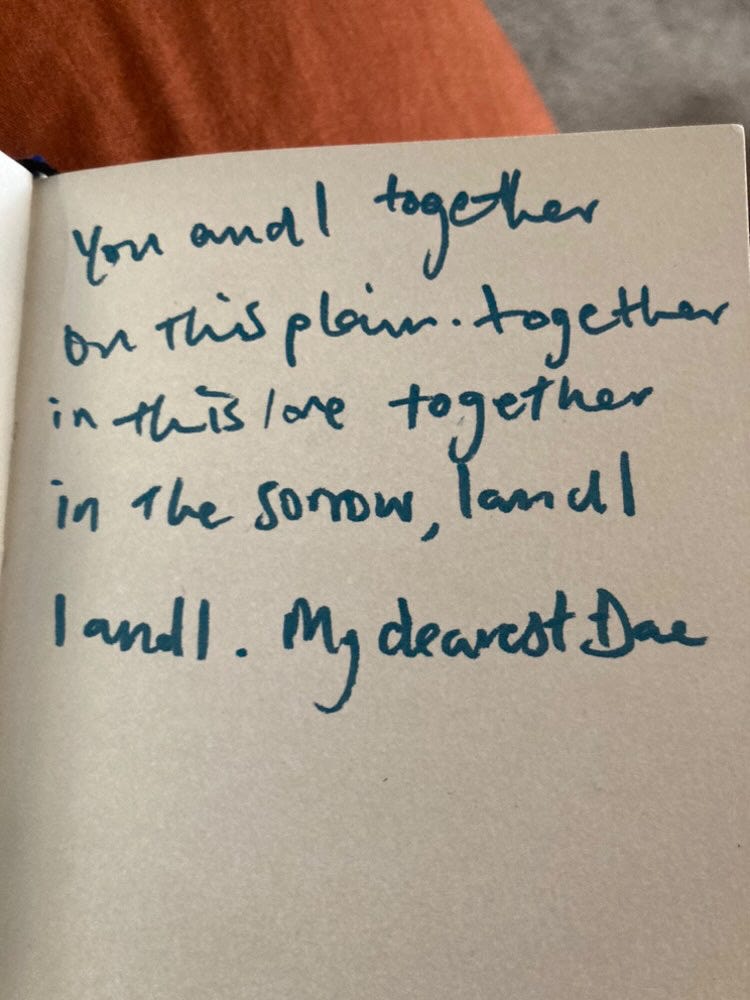 You and I together
on this plain. together
in this love together
in the sorrow, I and I
I and I. My dearest Dae